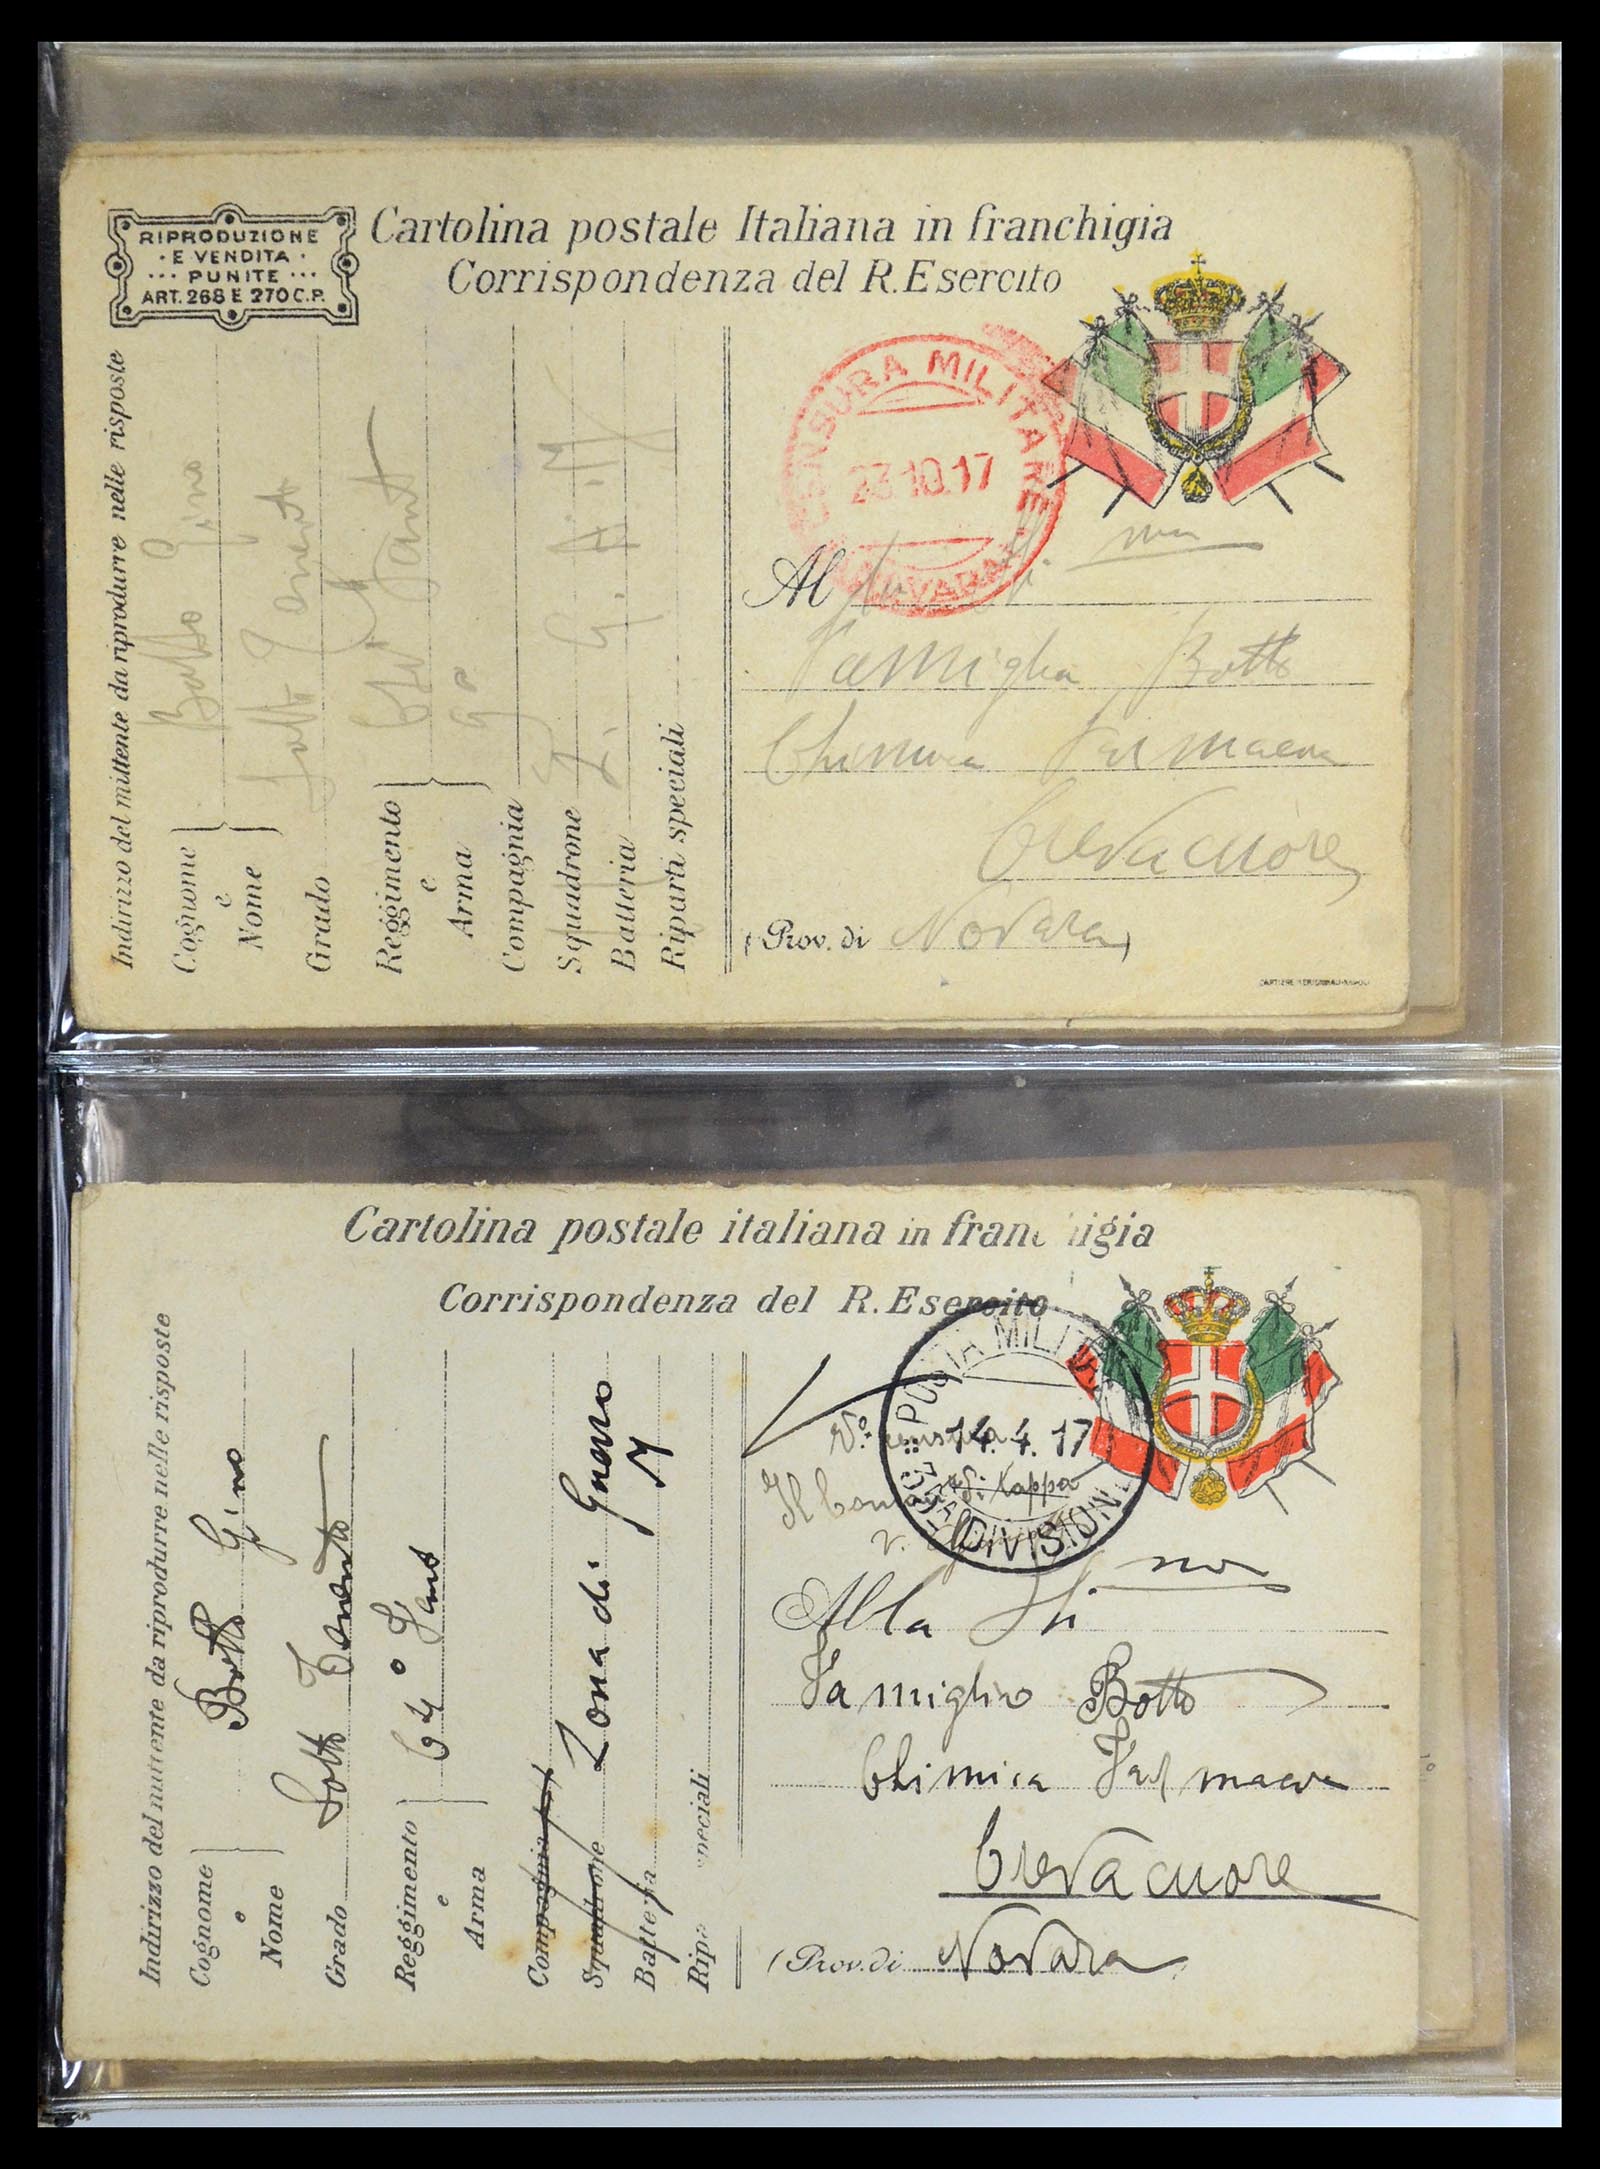 RIPRODUZIONE
· E VENDITA ·
··· PUNITE ···
ART. 268 E 270 C.P.
Cartolina postale Italiana in franchigia
Corrispondenza del R. Esercito
Indirizzo del mittente da riprodurre nelle risposte
Cognome e Nome Botto Gino
Grado Sotto Tenente
Reggimento e Arma
Compagnia
Squadrone
Batteria
Riparti speciali
CENSURA MILITARE
23.10.17
NOVARA
Al
Famiglia Botto
Chimica Farmacia
Crevacuore
(Prov. di Novara)
Cartolina postale italiana in fran higia
Corrispondenza del R. Esercito
Indirizzo del mittente da riprodurre nelle risposte
Cognome e Nome Botto Gino
Grado Sotto Tenente
Reggimento e Arma 64° Fant
Compagnia
Squadrone Zona di Guerra
Batteria
Ripa peciali
POSTA MILITARE
14.4.17
DIVISIONE
Alla
Famiglia Botto
Chimica Farmacia
Crevacuore
(Prov. di Novara